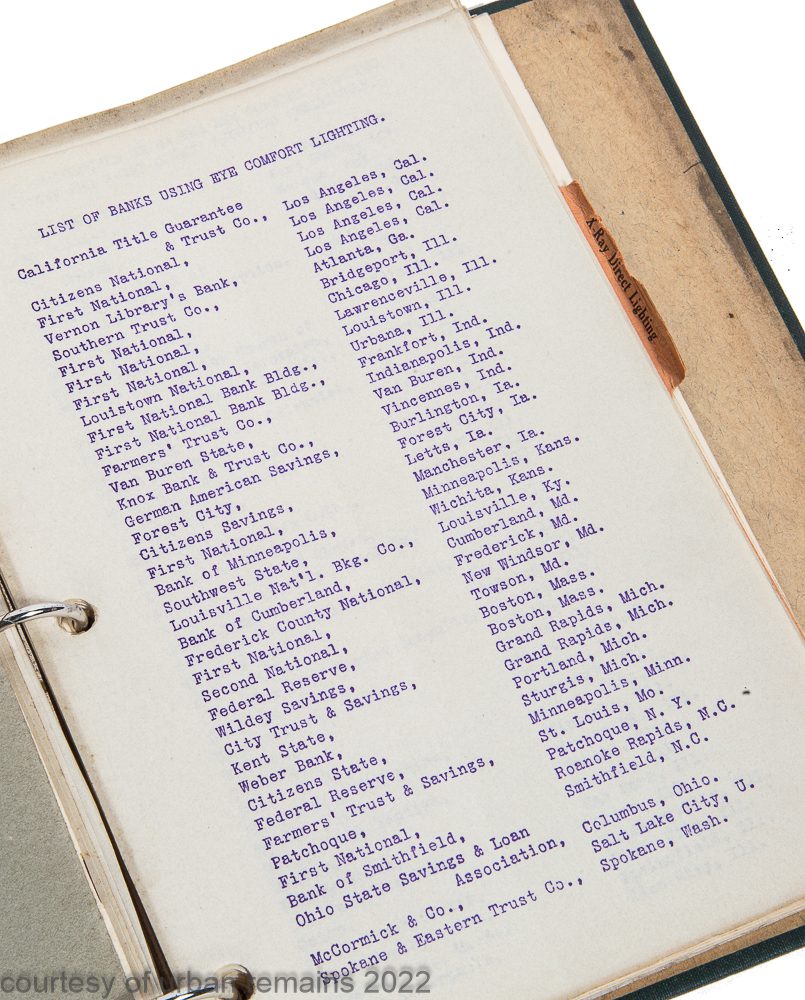 LIST OF BANKS USING EYE COMFORT LIGHTING.
California Title Guarantee
& Trust Co., Los Angeles, Cal.
Citizens National, Los Angeles, Cal.
First National, Los Angeles, Cal.
Vernon Library's Bank, Los Angeles, Cal.
Southern Trust Co., Atlanta, Ga.
First National, Bridgeport, Ill.
First National, Chicago, Ill.
First National, Lawrenceville, Ill.
Louistown National, Louistown, Ill.
First National Bank Bldg., Urbana, Ill.
First National Bank Bldg., Frankfort, Ind.
Farmers' Trust Co., Indianapolis, Ind.
Van Buren State, Van Buren, Ind.
Knox Bank & Trust Co., Vincennes, Ind.
German American Savings, Burlington, Ia.
Forest City, Forest City, Ia.
Citizens Savings, Letts, Ia.
First National, Manchester, Ia.
Bank of Minneapolis, Minneapolis, Kans.
Southwest State, Wichita, Kans.
Louisville Nat'l. Bkg. Co., Louisville, Ky.
Bank of Cumberland, Cumberland, Md.
Frederick County National, Frederick, Md.
First National, New Windsor, Md.
Second National, Towson, Md.
Federal Reserve, Boston, Mass.
Wildey Savings, Boston, Mass.
City Trust & Savings, Grand Rapids, Mich.
Kent State, Grand Rapids, Mich.
Weber Bank, Portland, Mich.
Citizens State, Sturgis, Mich.
Federal Reserve, Minneapolis, Minn.
Farmers' Trust & Savings, St. Louis, Mo.
Patchoque, Patchoque, N. Y.
First National, Roanoke Rapids, N.C.
Bank of Smithfield, Smithfield, N.C.
Ohio State Savings & Loan
Association, Columbus, Ohio.
McCormick & Co., Salt Lake City, U.
Spokane & Eastern Trust Co., Spokane, Wash.
X-Ray Direct Lighting
courtesy of urban remains 2022